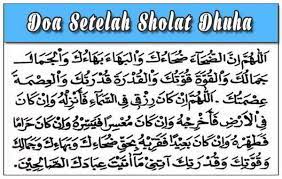 Doa Setelah Sholat Dhuha
اَللّٰهُمَّ اِنَّ الضُّحَآءَ ضُحَاءُكَ وَالْبَهَاءَ بَهَاءُكَ وَالْجَمَالَ
جَمَالُكَ وَالْقُوَّةَ قُوَّتُكَ وَالْقُدْرَةَ قُدْرَتُكَ وَالْعِصْمَةَ
عِصْمَتُكَ. اَللّٰهُمَّ اِنْ كَانَ رِزْقِى فِى السَّمَآءِ فَأَنْزِلْهُ وَاِنْ كَانَ
فِى الْاَرْضِ فَأَخْرِجْهُ وَاِنْ كَانَ مُعْسِرًا فَيَسِّرْهُ وَاِنْ كَانَ حَرَامًا
فَطَهِّرْهُ وَاِنْ كَانَ بَعِيْدًا فَقَرِّبْهُ بِحَقِّ ضُحَاءِكَ وَبَهَاءِكَ وَجَمَالِكَ
وَقُوَّتِكَ وَقُدْرَتِكَ آتِنِىْ مَآ اَتَيْتَ عِبَادَكَ الصَّالِحِيْنَ.